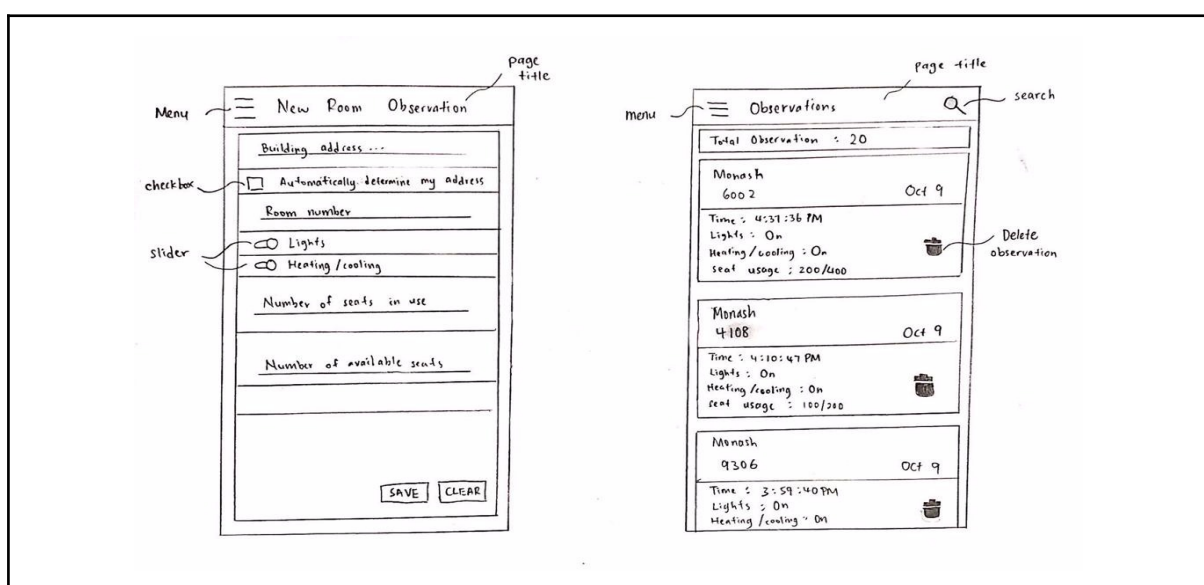 page title
Menu
New Room Observation
Building address ...
checkbox
Automatically determine my address
Room number
slider
Lights
Heating/cooling
Number of seats in use
Number of available seats
SAVE CLEAR
page title
menu
Observations
search
Total Observation : 20
Monash
6002 Oct 9
Time : 4:37:36 PM
Lights : On
Heating/cooling : On
seat usage : 200/400
Delete observation
Monash
4108 Oct 9
Time : 4:10:47 PM
Lights : On
Heating/cooling : On
seat usage : 100/200
Monash
9306 Oct 9
Time : 3:59:40 PM
Lights : On
Heating/cooling : On